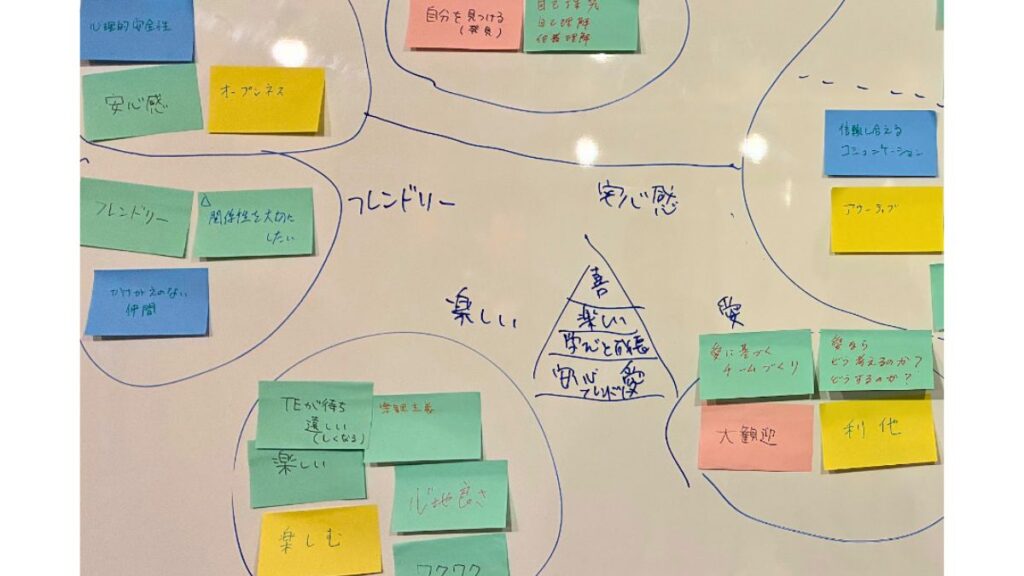 心理的安全性
安心感
オープンネス
自分を見つける
(発見)
自己探究
自己理解
他者理解
信頼し合える
コミュニケーション
フレンドリー
関係性を大切に
したい
かけがえのない
仲間
フレンドリー
安心感
楽しい
愛
善
楽しい
学びと成長
安心 愛
フレンド
愛に基づく
チームづくり
愛なら
どう考えるのか?
どうするのか?
大歓迎
利他
TEが待ち
遠しい
(しくなる)
楽観主義
楽しい
心地良さ
楽しむ
ワクワク